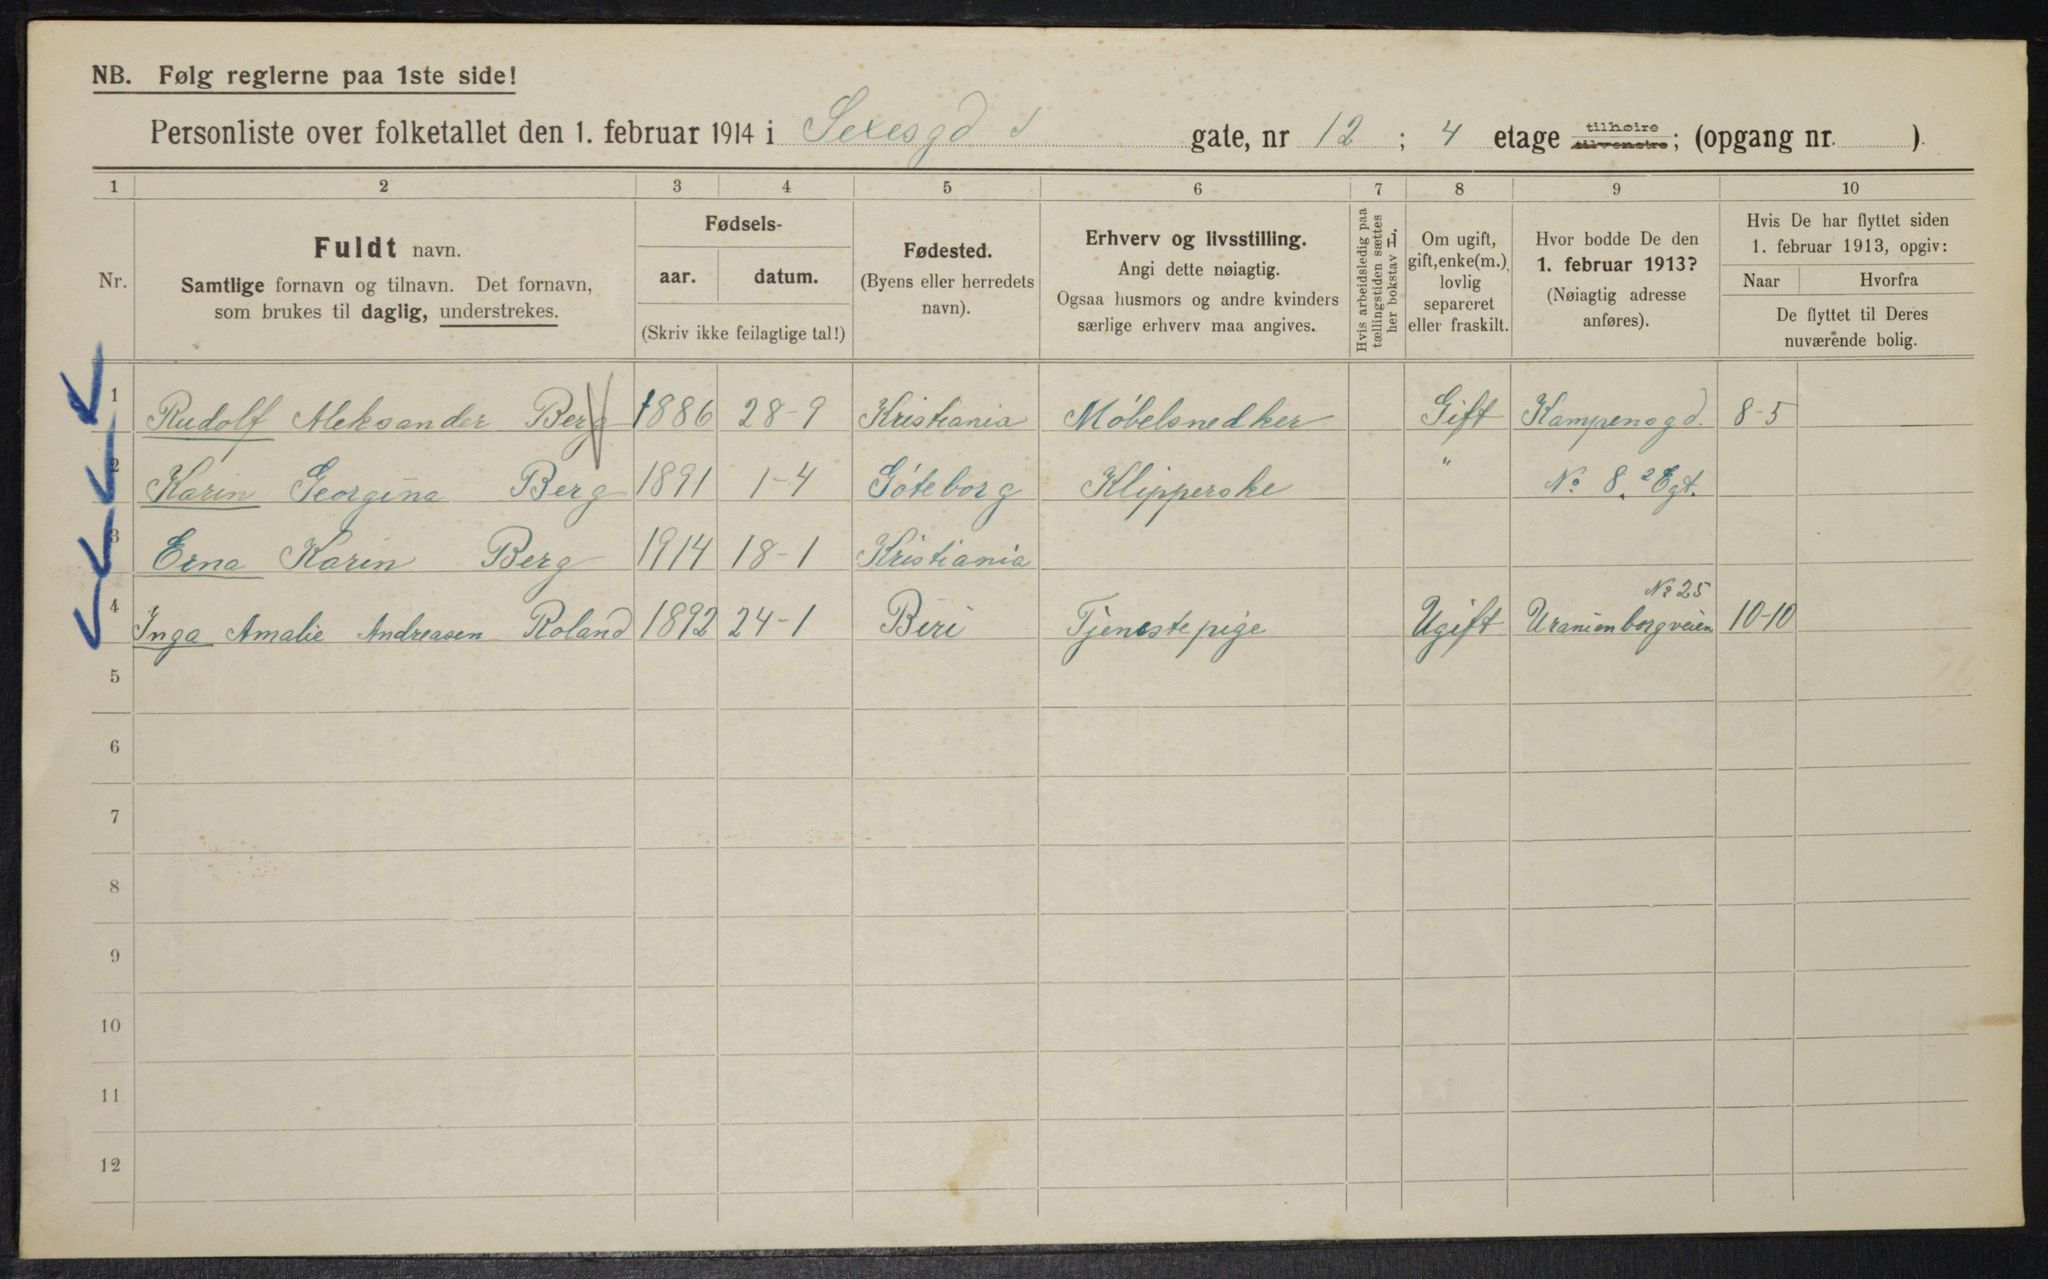 NB. Følg reglerne paa 1ste side!
Personliste over folketallet den 1. februar 1914 i Sexesgd gate, nr 12 ; 4 etage tilhøire tilvenstre; (opgang nr. ).
1 2 3 4 5 6 7 8 9 10
Nr.
Fuldt navn.
Samtlige fornavn og tilnavn. Det fornavn,
som brukes til daglig, understrekes.
Fødsels-
aar. datum.
(Skriv ikke feilagtige tal!)
Fødested.
(Byens eller herredets
navn).
Erhverv og livsstilling.
Angi dette nøiagtig.
Ogsaa husmors og andre kvinders
særlige erhverv maa angives.
Hvis arbeidsledig paa
tællingstiden sættes
her bokstav L.
Om ugift,
gift, enke(m.),
lovlig
separeret
eller fraskilt.
Hvor bodde De den
1. februar 1913?
(Nøiagtig adresse
anføres).
Hvis De har flyttet siden
1. februar 1913, opgiv:
Naar Hvorfra
De flyttet til Deres
nuværende bolig.
1 Rudolf Aleksander Berg 1886 28-9 Kristiania Møbelsnedker Gift Kampensgd. 8-5
2 Karin Georgina Berg 1891 1-4 Göteborg Klipperske " No 8, 2 Egt.
3 Erna Karin Berg 1914 18-1 Kristiania
No 25
4 Inga Amalie Andreasen Roland 1892 24-1 Biri Tjenestepige Ugift Uranienborgveien 10-10
5
6
7
8
9
10
11
12